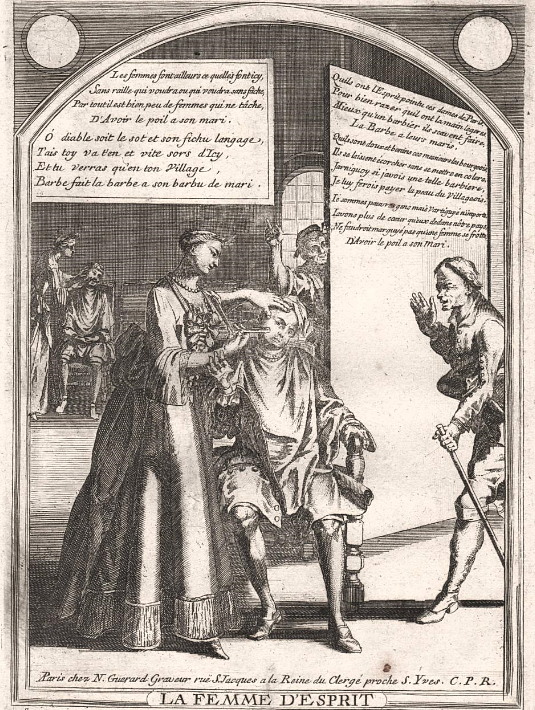 Les femmes font ailleurs ce quelles font icy,
Sans raille qui voudra ou qui voudra sans fiche,
Par tout il est bien peu de femmes qui ne tâche,
D'Avoir le poil a son mari.
O diable soit le sot et son fichu langage,
Tais toy va t'en et vite sors d'Icy,
Et tu verras qu'en ton Village,
Barbe fait la barbe a son barbu de mari.
Quils ont l'Esprit pointu ces dames de Paris
Pour bien razer quil ont la main legere
Mieux qu'un barbier ils scavent faire,
La Barbe a leurs maris.
Quils sont doux et benins ces maris les bourgeois,
Ils se laissent écorcher sans se mettre en colere,
Jarniguoy si j'avois une telle barbiere,
Je luy ferois payer la peau du Villageois.
Je sommes pauvres gens mais Vartigué n'importe
J'avons plus de cœur qu'eux dedans nôtre pays,
Ne foudroit morguoyé pas qu'une femme se frotte
D'Avoir le poil a son Mari.
A Paris chez N. Guerard Graveur rue S. Jacques a la Reine du Clergé proche S. Yves. C. P. R.
LA FEMME D'ESPRIT